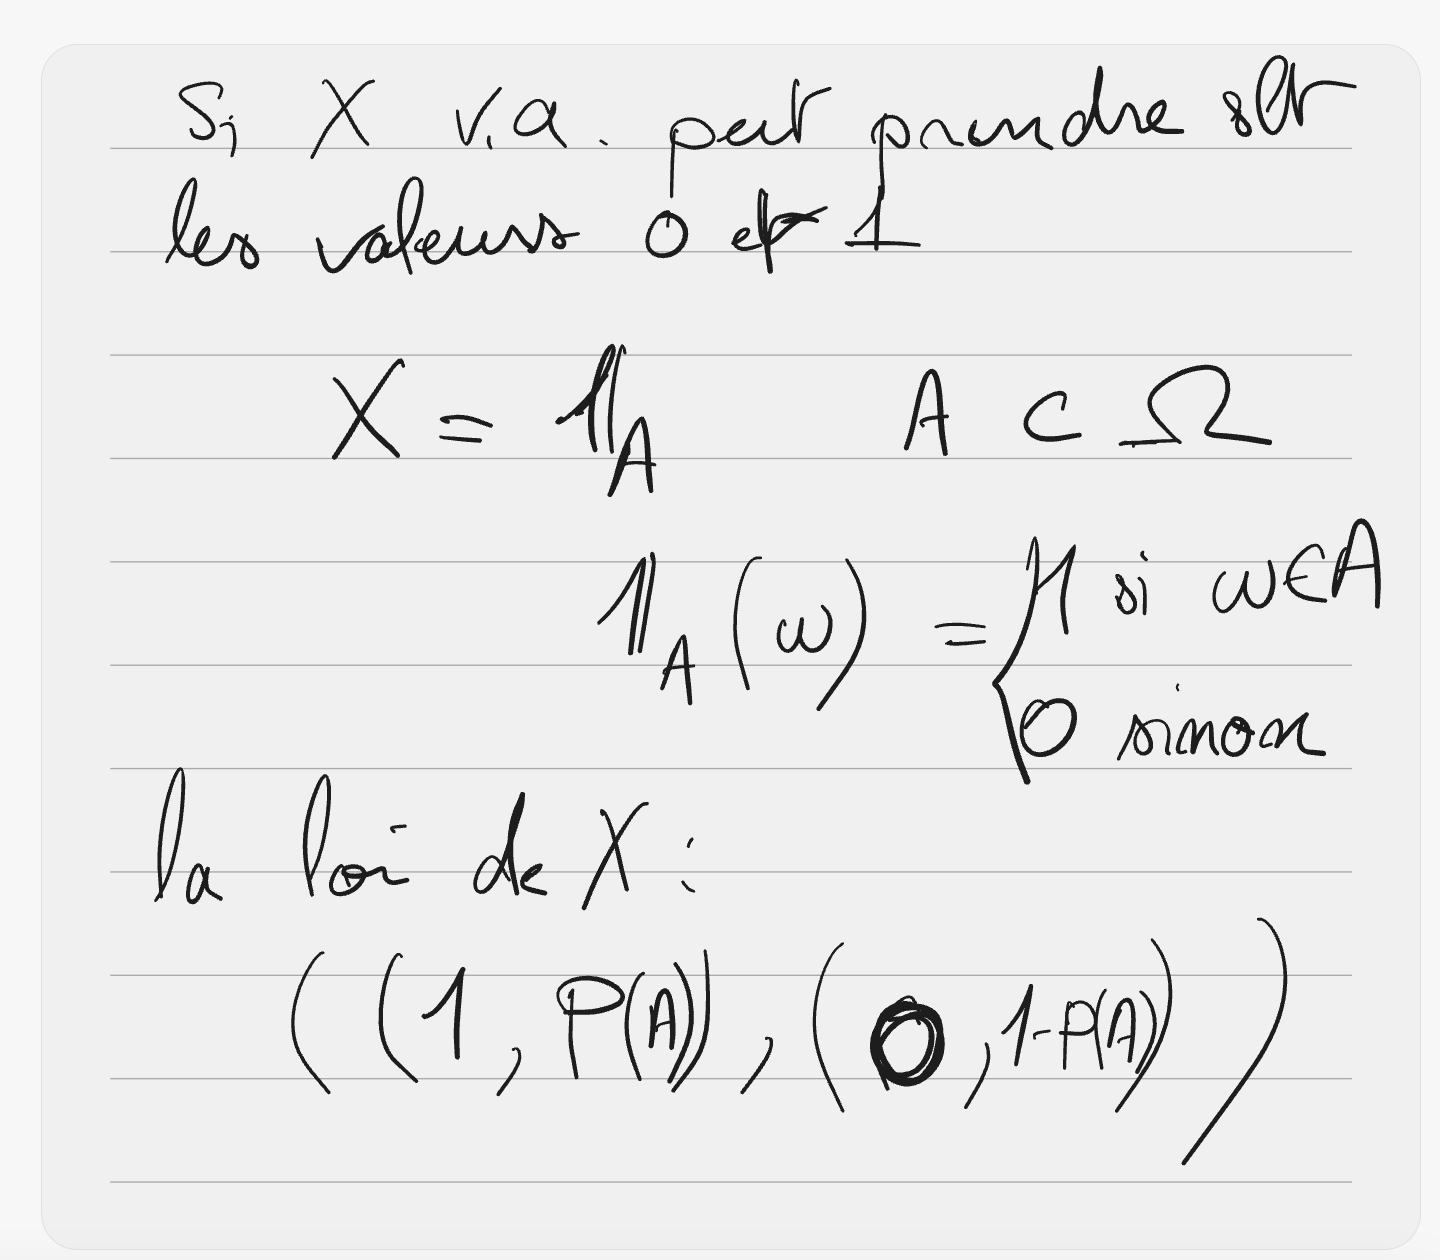 Si X v.a. peut prendre slt
les valeurs 0 et 1
X = 𝟙_A A ⊂ Ω
𝟙_A (ω) = { 1 si ω ∈ A
0 sinon
la loi de X :
((1, P(A)), (0, 1-P(A)))